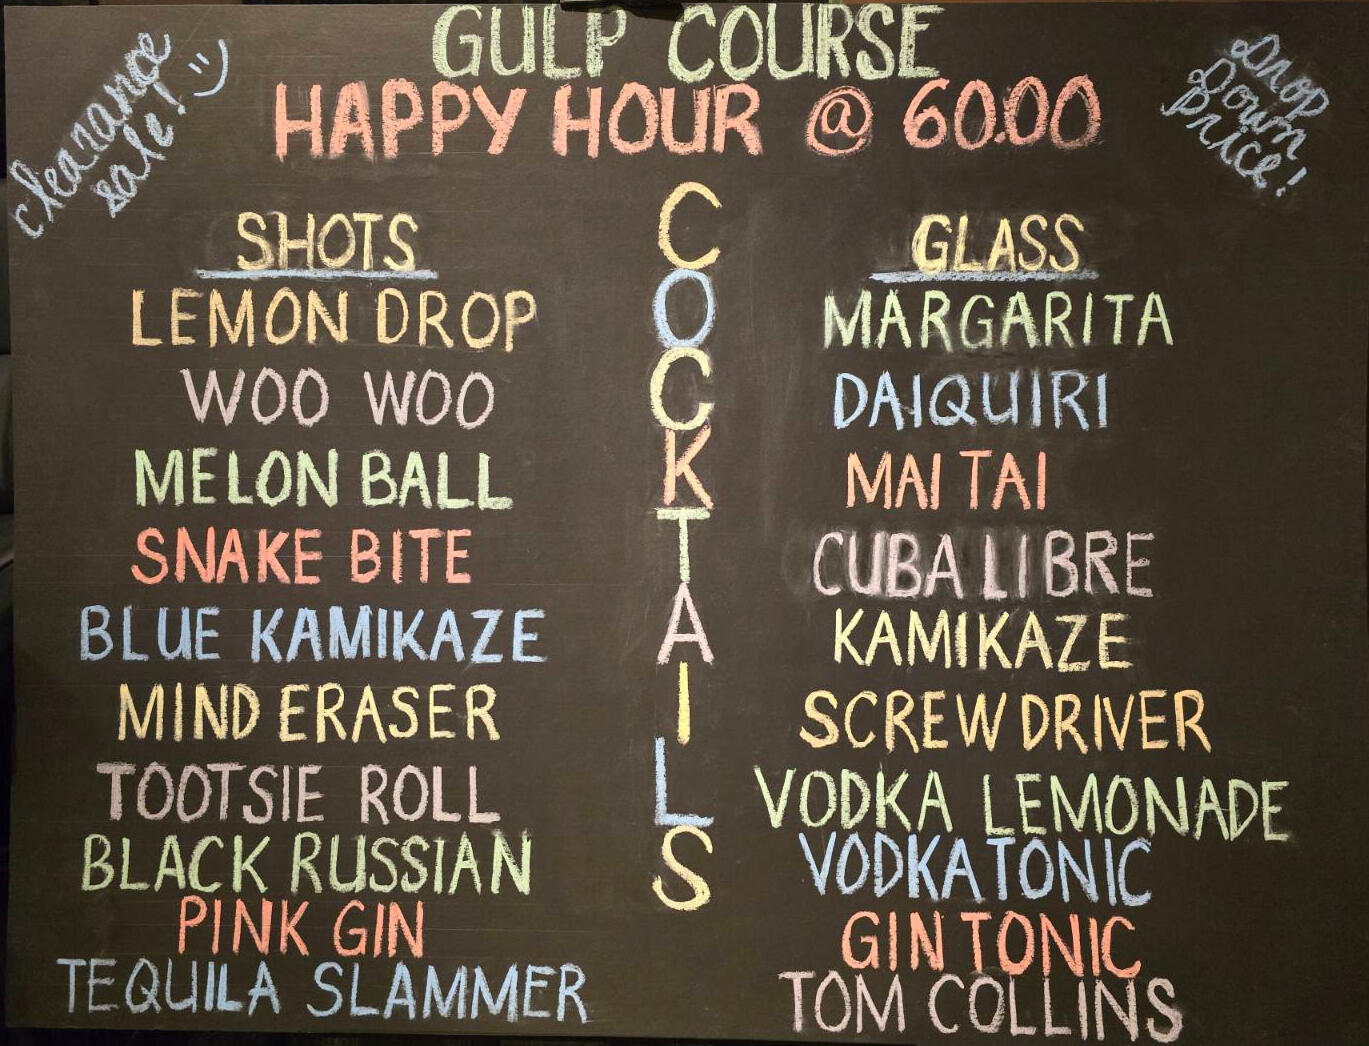 GULP COURSE
HAPPY HOUR @ 60.00
clearance
sale! :)
Drop
Down
Price!
COCKTAILS
SHOTS
LEMON DROP
WOO WOO
MELON BALL
SNAKE BITE
BLUE KAMIKAZE
MIND ERASER
TOOTSIE ROLL
BLACK RUSSIAN
PINK GIN
TEQUILA SLAMMER
GLASS
MARGARITA
DAIQUIRI
MAI TAI
CUBA LIBRE
KAMIKAZE
SCREWDRIVER
VODKA LEMONADE
VODKA TONIC
GIN TONIC
TOM COLLINS